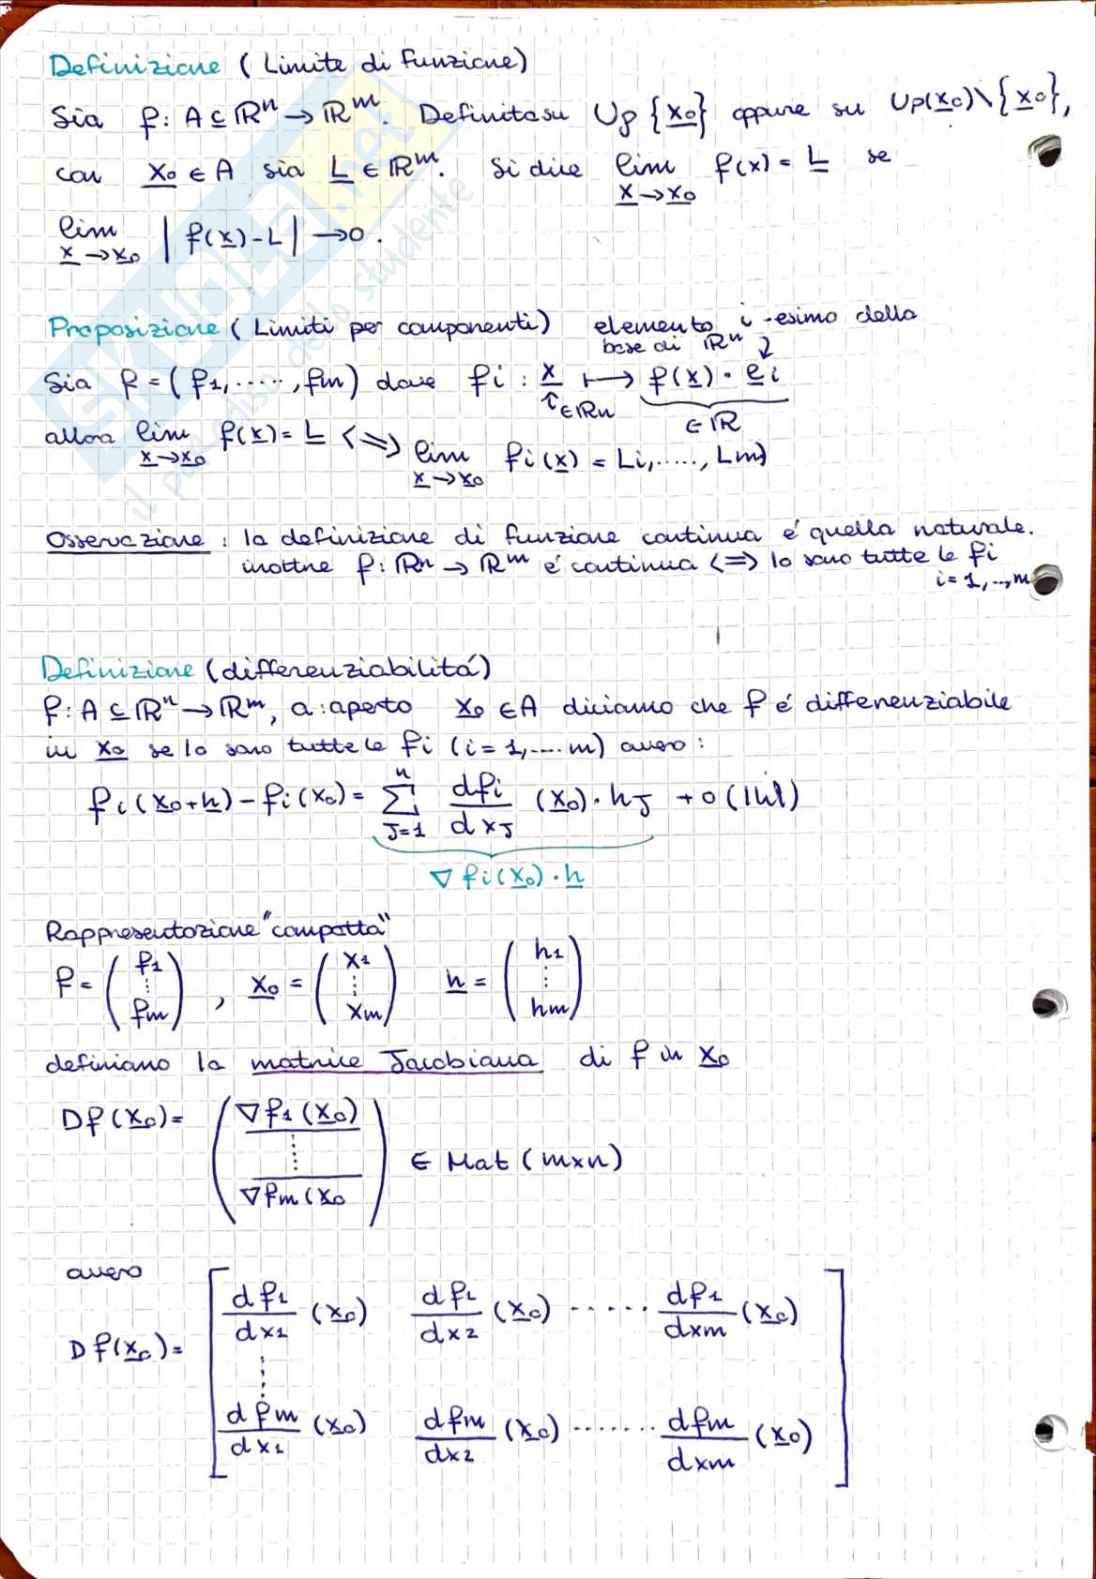 Definizione (Limite di funzione)
Sia f: A ⊆ ℝⁿ → ℝᵐ. Definita su Up {x₀} oppure su Up(x₀)\{x₀},
con x₀ ∈ A sia L ∈ ℝᵐ. Si dice lim x→x₀ f(x) = L se
lim x→x₀ |f(x)-L| → 0.
Proposizione (Limiti per componenti) elemento i-esimo della
base di ℝⁿ
Sia f = (f1, ....., fm) dove fi : x ↦ f(x) · ei
∈ℝn ∈ ℝ
allora lim x→x₀ f(x) = L <=> lim x→x₀ fi(x) = Li, ....., Lm)
Osservazione : la definizione di funzione continua é quella naturale.
inoltre f: ℝⁿ → ℝᵐ é continua <=> lo sono tutte le fi
i= 1, .., m
Definizione (differenziabilitá)
f: A ⊆ ℝⁿ → ℝᵐ, a: aperto x₀ ∈ A diciamo che f é differenziabile
in x₀ se lo sono tutte le fi (i= 1, .... m) ovvero:
fi(x₀+h) - fi(x₀) = ∑ J=1 n dfi/dxJ (x₀) · hJ + o(|h|)
∇ fi(x₀) · h
Rappresentazione "compatta"
f = (f1 ⋮ fm), x₀ = (x1 ⋮ xm) h = (h1 ⋮ hm)
definiamo la matrice Jacobiana di f in x₀
Df(x₀) = (∇f1(x₀) ⋮ ∇fm(x₀ ) ∈ Mat (m×n)
ovvero
Df(x₀) = [df1/dx1 (x₀) df1/dx2 (x₀) ..... df1/dxm (x₀)
⋮
dfm/dx1 (x₀) dfm/dx2 (x₀) ....... dfm/dxm (x₀)]
SKUOLA.net
il paradiso dello studente